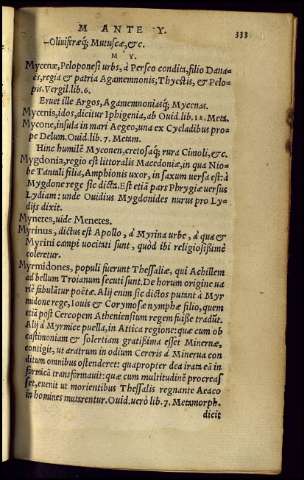 M ANTE Y.
333
—Oliuiferæq́; Mutuscæ, &c.
M Y.
Mycenæ, Peloponesi urbs, à Perseo condita, filio Dana-
es, regia & patria Agamemnonis, Thyestis, & Pelo-
pis. Vergil. lib. 6.
Eruet ille Argos, Agamemnoniasq́; Mycenas.
Mycenis, idos, dicitur Iphigenia, ab Ouid. lib. 12. Met.
Mycone, insula in mari Aegeo, una ex Cycladibus pro-
pe Delum. Ouid. lib. 7. Metam.
Hinc humilē Myconen, cretosaq́; rura Cimoli, &c.
Mygdonia, regio est littoralis Macedoniæ, in qua Nio-
be Tantali filia, Amphionis uxor, in saxum uersa est: à
Mygdone rege sic dicta. Est etiā pars Phrygiæ uersus
Lydiam: unde Ouidius Mygdonides nurus pro Ly-
dijs dixit.
Mynetes, uide Menetes.
Myrinus, dictus est Apollo, à Myrina urbe, à qua &
Myrini campi uocitati sunt, quòd ibi religiosissimè
coleretur.
Myrmidones, populi fuerunt Thessaliæ, qui Achillem
ad bellum Troianum secuti sunt. De horum origine ua
riè fabulātur poëtæ. Alij enim sic dictos putant à Myr
midone rege, Iouis & Corymosæ nymphæ filio, quem
etiā post Cecropem Atheniensium regem fuisse tradūt.
Alij à Myrmice puella, in Attica regione: quæ cum ob
castimoniam & solertiam gratissima esset Mineruæ,
contigit, ut aratrum in odium Cereris à Minerua con
ditum omnibus ostenderet: quapropter dea irata eā in
formicā transformauit: quæ cum multitudinē procreas
set, euenit ut morientibus Thessalis regnante Aeaco
in homines mutarentur. Ouid. uerò lib. 7. Metamorph.
dicit